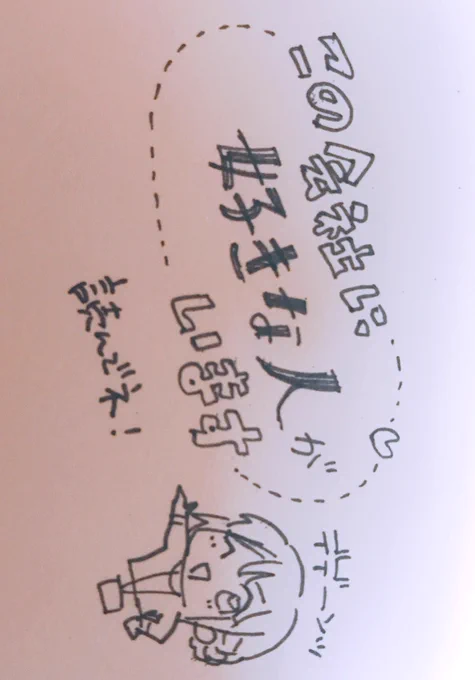 この会社に
好きな人が
います
読んでネ!
デデーンッ